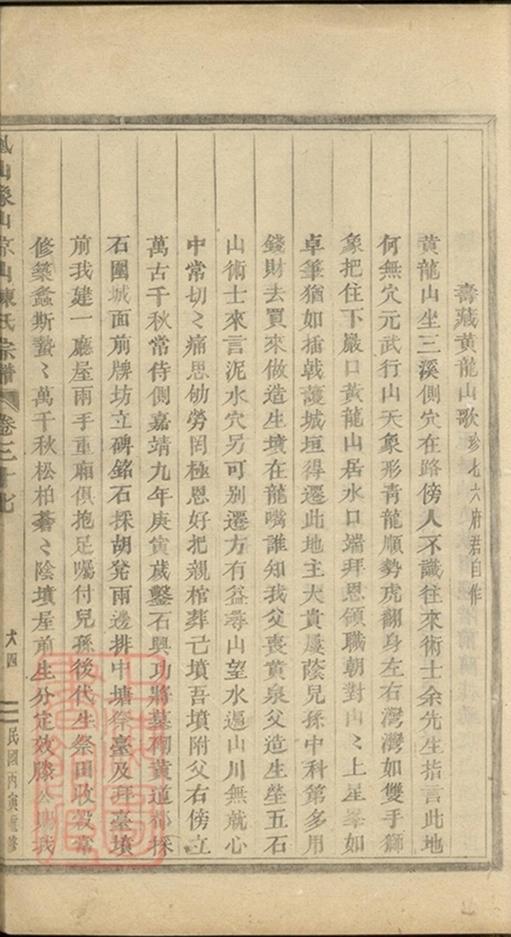 壽藏黃龍山歌珍七六府君自作
黃龍山坐三溪側穴在路傍人不識往來術士余先生指言此地
何無穴元武行山天象形青龍順勢虎翻身左右灣灣如雙手獅
象把住下巖口黃龍山居水口端拜恩領職朝對山〻上星峯如
卓筆猶如插戟護城垣得遷此地主大貴屢蔭兒孫中科第多用
錢財去買來做造生墳在龍嘴誰知我父喪黃泉父造生塋五石
山術士來言泥水穴另可別遷方有益尋山望水遍山川無就心
中常切〻痛思劬勞罔極恩好把親棺葬亡墳吾墳附父右傍立
萬古千秋常侍側嘉靖九年庚寅歲鑿石興功將墓黃道都採
石圍城面前牌坊立碑銘石採胡発兩邊排中塘祭臺及拜臺墳
前我建一廳屋兩手重廂俱抱足囑付兒孫後代生祭田收穀當
修築螽斯蟄〻萬千秋松柏蒼〻陰墳屋前生分定效滕公賜我
象山京山陳氏宗譜 卷三十七 六四 民國丙寅重修